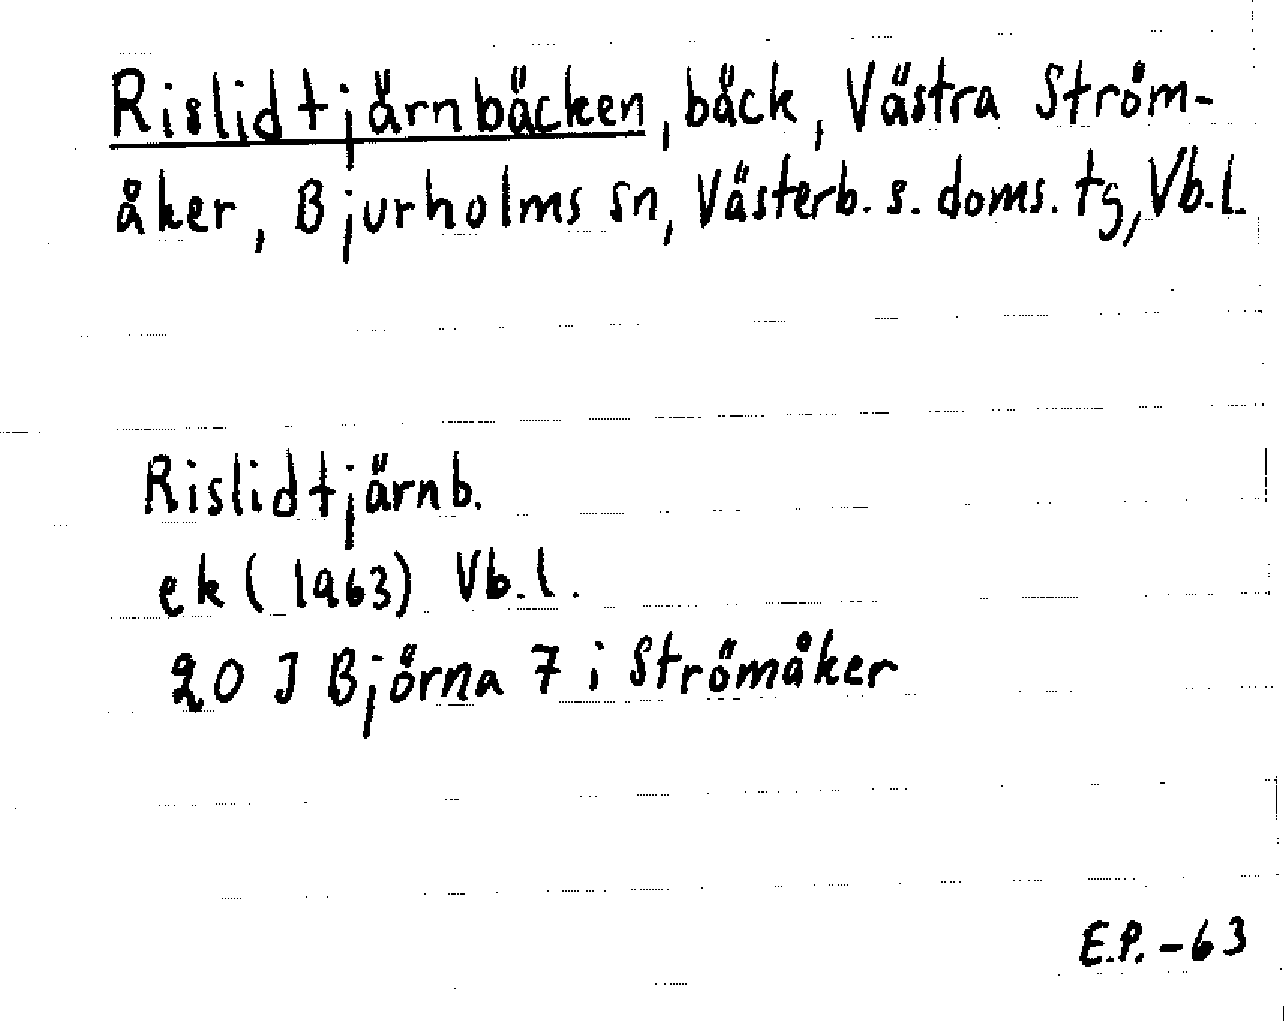 Rislidtjärnbäcken, bäck, Västra Ström-
åker, Bjurholms sn, Västerb. s. doms. tg, Vb.l.
Rislidtjärnb.
ek (1963) Vb.l.
20 J Björna 7 i Strömåker
E.P. - 63